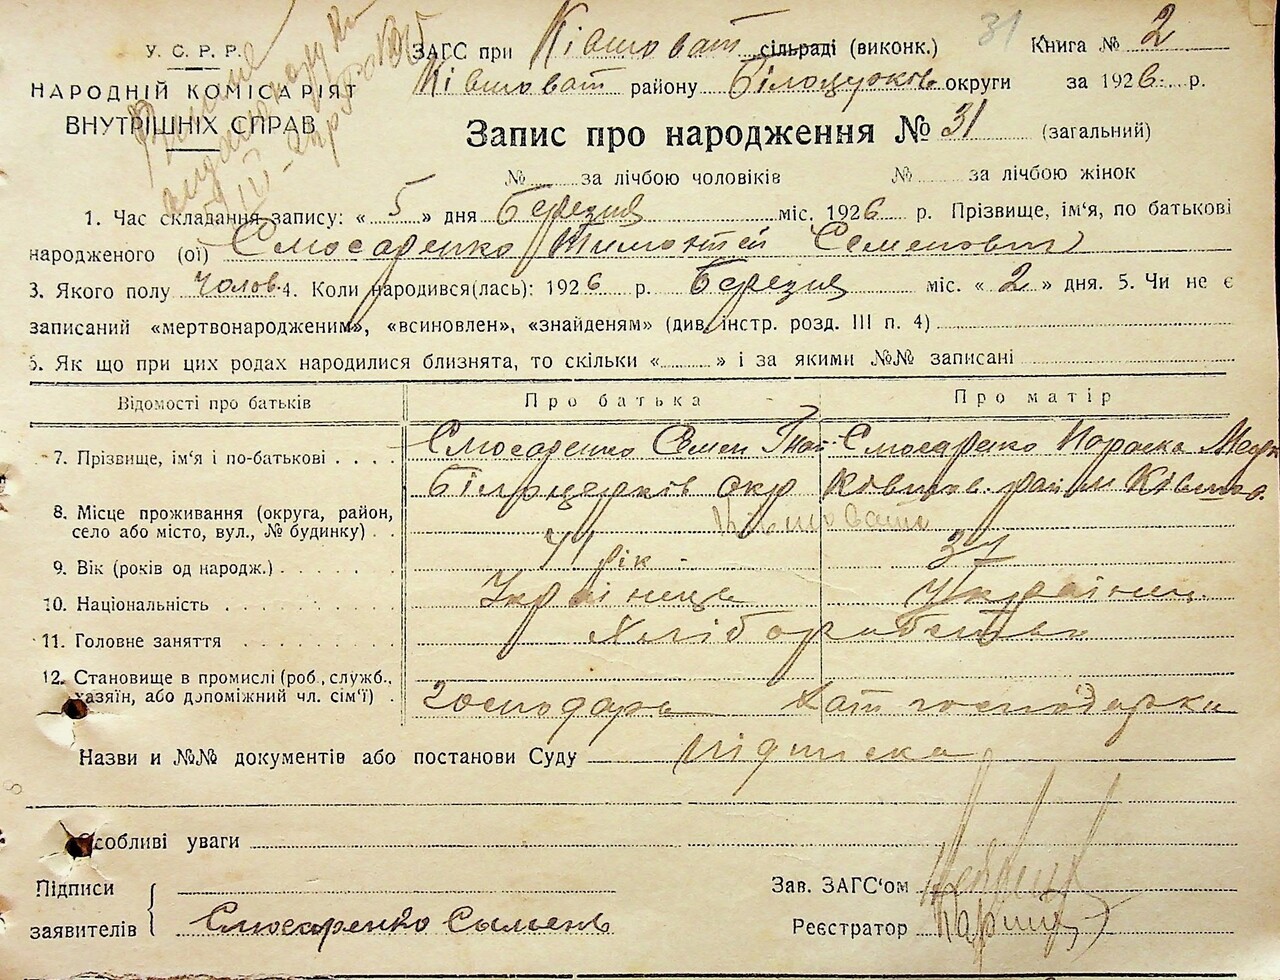 У.С.Р.Р.
НАРОДНІЙ КОМІСАРІЯТ
ВНУТРІШНІХ СПРАВ
31
ЗАГС при Ківшоват сільраді (виконк.) Книга № 2
Ківшоват району Білоцерків округи за 1926 р.
Запис про народження № 31 (загальний)
№ за лічбою чоловіків № за лічбою жінок
1. Час складання запису: « 5 » дня Березня міс. 1926 р. Прізвище, ім'я, по батькові
народженого (ої) Слюсаренко Тимофтей Семенович
3. Якого полу Чолов. 4. Коли народився(лась): 1926 р. Березня міс. « 2 » дня. 5. Чи не є
записаний «мертвонародженим», «всиновлен», «знайденям» (див. інстр. розд. III п. 4)
6. Як що при цих родах народилися близнята, то скільки « » і за якими №№ записані
Відомості про батьків Про батька Про матір
7. Прізвище, ім'я і по-батькові Слюсаренко Семен Гнат Слюсаренко Пораска
Білоцерків окр Ківшов. район Ківшов.
8. Місце проживання (округа, район,
село або місто, вул., № будинку) Ківшовата
9. Вік (років од народж.) 41 рік 37
10. Національність Українець Українец.
11. Головне заняття Хліборобство
12. Становище в промислі (роб., служб.,
хазяїн, або допоміжний чл. сім'ї) Господарь Хат господарка
Назви и №№ документів або постанови Суду підписка
Особливі уваги
Підписи
заявителів Слюсаренко Сымень
Зав. ЗАГС'ом
Реєстратор